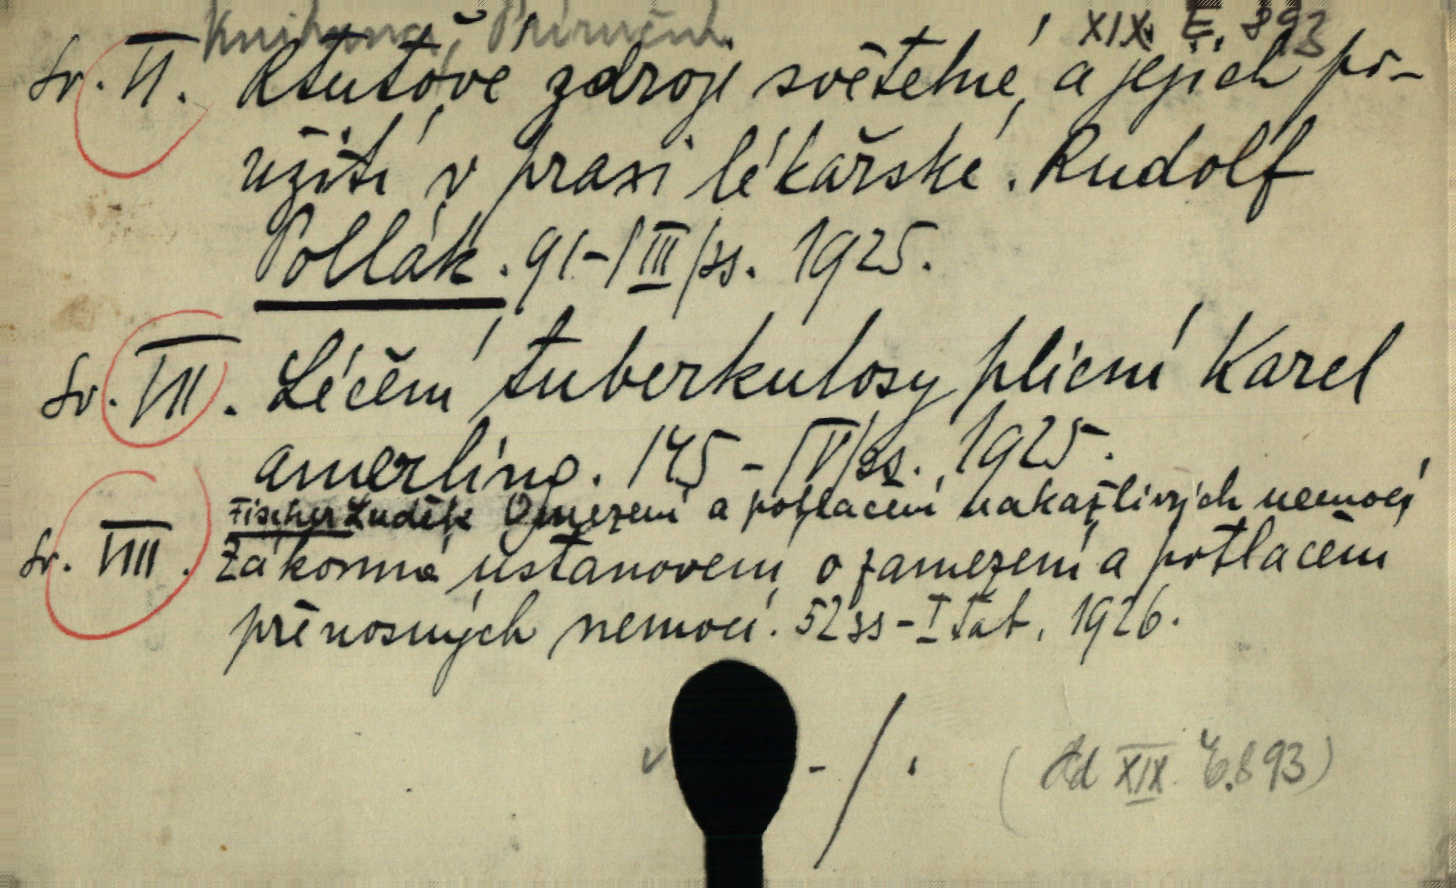 Knihovna Příruční XIX. E. 893
Sv. VI. Rtuťové zdroje světelné a jejich po-
užití v praxi lékařské. Rudolf
Pollák. 91-III/ss. 1925.
Sv. VII. Léčení tuberkulosy plicní Karel
Amerling. 145-IV/ss. 1925.
Fischer Luděk Omezení a potlačení nakažlivých nemocí
Sv. VIII. Zákonná ustanovení o zamezení a potlačení
přenosných nemocí. 52 ss - I Tab. 1926.
- / . (Ad XIX E.893)